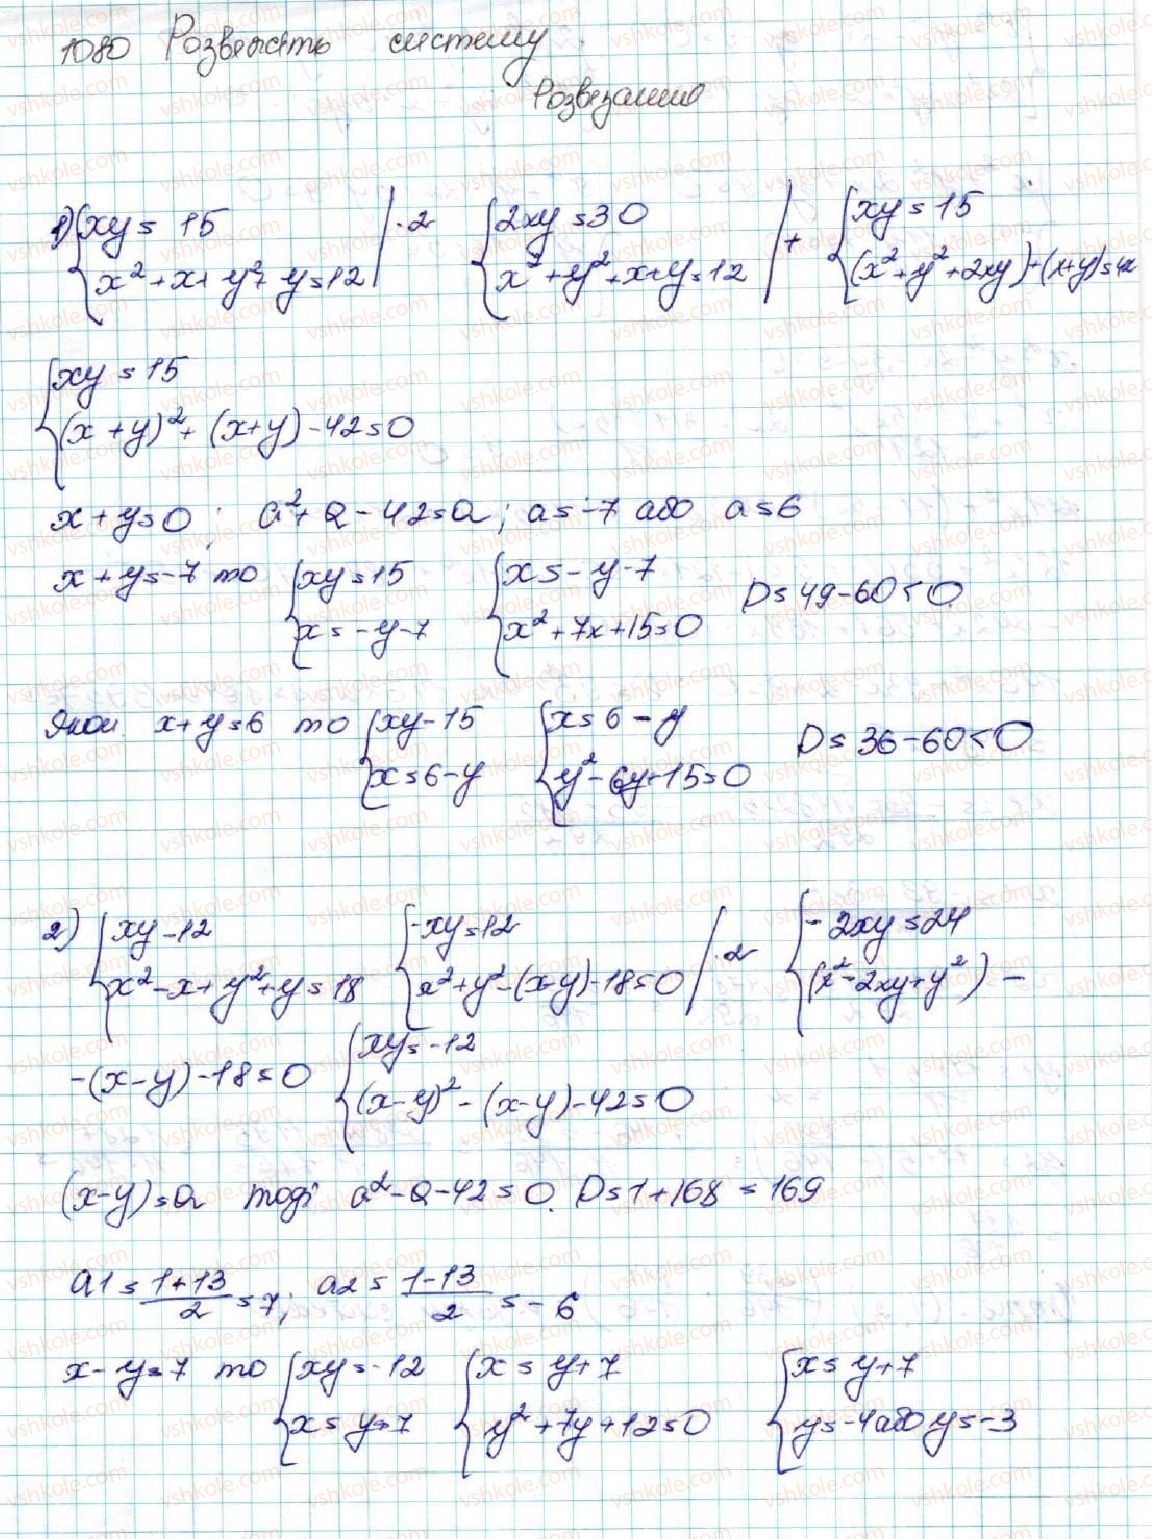 1080 Розвяжіть систему
Розвязання
1) {xy = 15 | ·2 {2xy = 30 | + {xy = 15
{x² + x + y² + y = 12 {x² + y² + x + y = 12 {(x² + y² + 2xy) + (x + y) = 42
{xy = 15
{(x + y)² + (x + y) - 42 = 0
x + y = 0; a² + a - 42 = a; a = -7 або a = 6
x + y = -7 то {xy = 15 {x = -y - 7 D = 49 - 60 < 0
{x = -y - 7 {x² + 7x + 15 = 0
Якщо x + y = 6 то {xy - 15 {x = 6 - y D = 36 - 60 < 0
{x = 6 - y {y² - 6y + 15 = 0
2) {xy - 12 {-xy = 12 | ·2 {-2xy = 24
{x² - x + y² + y = 18 {x² + y² - (x - y) - 18 = 0 {(x² - 2xy + y²) -
-(x - y) - 18 = 0 {xy = -12
{(x - y)² - (x - y) - 42 = 0
(x - y) = a тоді a² - a - 42 = 0. D = 1 + 168 = 169
a1 = (1 + 13)/2 = 7; a2 = (1 - 13)/2 = -6
x - y = 7 то {xy = -12 {x = y + 7 {x = y + 7
{x = y + 7 {y² + 7y + 12 = 0 {y = -4 або y = -3